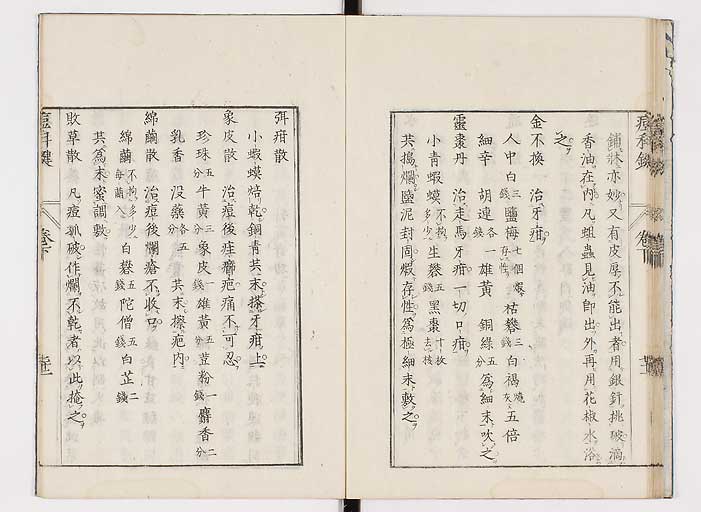 鏽牀亦妙又有皮厚不能出者用銀針挑破滴
香油在內凡蛆蟲見油卽出外再用花椒水浴
之
金不換　治牙疳
人中白三錢鹽梅七個煅存性枯礬三錢白褐燒灰五倍
細辛　胡連各一錢雄黃　銅綠各五分爲細末吹之
靈棗丹　治走馬牙疳一切口疳
小青蝦蟆不拘多少生礬五錢黑棗十枚去核
共搗爛鹽泥封固煅存性爲極細末敷之
弭疳散
小蝦蟆焙乾銅青共末搽牙疳上
象皮散　治痘後疰癬疤痛不可忍
珍珠五分牛黃三分象皮五錢雄黃五分荳粉一錢麝香二分
乳香　沒藥各五分　共末擦疤內
綿繭散　治痘後爛瘡不收口
綿繭不拘多少每繭入白礬五錢陀僧五錢白芷二錢
共爲末蜜調敷
敗草散　凡痘抓破作爛不乾者以此掩之
卷下